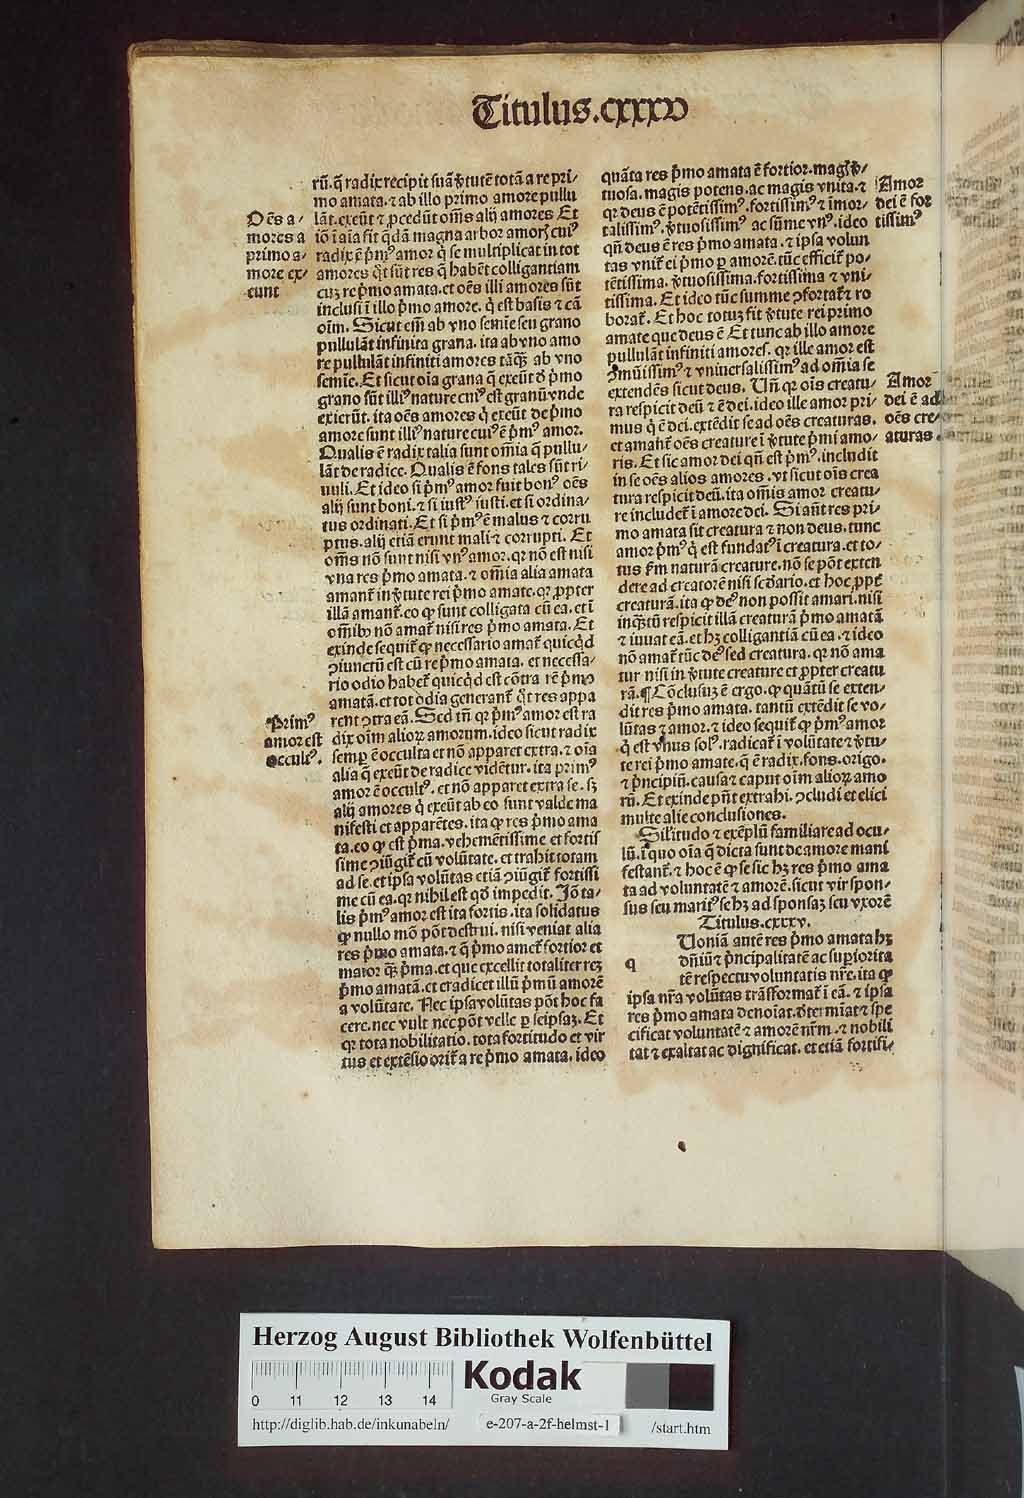 Titulus.cxxxv
rū. q̄ radix recipit suā v̓tutē totā a re pri⸗
mo amata. ⁊ ab illo primo amore pullu
lāt. exeūt ⁊ p̱cedūt om̄s alij amores Et
iō ī aīa fit q̄dā magna arbor amoꝝ cui⁹
radix ē p̄m⁹ amor q̇ se multiplicat in tot
amores q̇t sūt res q̄ habēt colligantiam
cuꝫ re p̄mo amata. et oēs illi amores sūt
inclusi ī illo p̄mo amore. q̇ est basis ⁊ cā
oīm. Sicut em̄ ab vno semīe seu grano
pullulāt infinita grana. ita ab vno amo
re pullulāt infiniti amores tāq̄ꝫ ab vno
semīe. Et sicut oīa grana q̄ exeūt d̓ p̄mo
grano sūt illi⁹ nature cui⁹ est granū vnde
exierūt. ita oēs amores q̇ exeūt de p̄mo
amore sunt illi⁹ nature cui⁹ ē p̄m⁹ amor.
Qualis ē radix talia sunt om̄ia q̄ pullu⸗
lāt de radice. Qualis ē fons tales sūt ri⸗
uuli. Et ideo si p̄m⁹ amor fuit bon⁹ oēs
alij sunt boni. ⁊ si iust⁹ iusti. et si ordina⸗
tus ordinati. Et si p̄m⁹ ē malus ⁊ corru
ptus. alij etiā erunt mali ⁊ corrupti. Et
om̄s nō sunt nisi vn⁹ amor. qꝛ nō est nisi
vna res p̄mo amata. ⁊ om̄ia alia amata
amant̄ in v̓tute rei p̄mo amate. qꝛ ꝓpter
illā amant̄. eo ꝙ sunt colligata cū ea. et ī
om̄ibꝫ nō amat̄ nisi res p̄mo amata. Et
exinde sequit̄ ꝙ necessario amat̄ quicq̇d
ↄiunctū est cū re p̄mo amata. et necessa⸗
rio odio habet̄ quicq̇d est cōtra rē p̄mo
amatā. et tot odia generant̄ q̇t res appa
rent ↄtra eā. Sed tn̄ qꝛ p̄m⁹ amor est ra
dix oīm alioꝝ amorum. ideo sicut radix
semp̱ ē occulta et nō apparet extra. ⁊ oīa
alia q̄ exeūt de radice vidētur. ita prim⁹
amor ē occult⁹. et nō apparet extra se. sꝫ
alij amores q̇ exeūt ab eo sunt valde ma
nifesti et apparētes. ita ꝙ res p̄mo ama
ta. eo ꝙ est p̄ma. vehemētissime et fortis
sime ↄiūgit̄ cū volūtate. et trahit totam
ad se. et ipsa volūtas etiā ↄiūgit̄ fortissi
me cū ea. qꝛ nihil est qd̓ impedit. Iō ta⸗
lis p̄m⁹ amor est ita fortis. ita solidatus
ꝙ nullo mō pōt destrui. nisi veniat alia
res p̄mo amata. ⁊ q̄ p̄mo amet̄ fortior et
maior q̄ꝫ p̄ma. et que excellit totaliter reꝫ
p̄mo amatā. et eradicet illū p̄mū amorē
a volūtate. Nec ipsa volūtas pōt hoc fa
cere. nec vult nec pōt velle ꝑ seipsaꝫ. Et
qꝛ tota nobilitatio. tota fortitudo et vir
tus et extēsio orit̄ a re p̄mo amata. ideo
Oēs a⸗
mores a
primo a⸗
more ex⸗
eunt
Prim⁹
amor est
occult⁹.
quāta res p̄mo amata ē fortior. magꝭ v̓⸗
tuosa. magis potens. ac magis vnita. ⁊
qꝛ deus ē potētissim⁹. fortissim⁹ ⁊ īmor⸗
talissim⁹. v̓tuosissim⁹ ac sūme vn⁹. ideo
qn̄ deus ē res p̄mo amata. ⁊ ipsa volun
tas vnit̄ ei p̄mo ꝑ amorē. tūc efficit̄ po⸗
tētissima. v̓tuosissima. fortissima ⁊ vni⸗
tissima. Et ideo tūc summe ↄfortat̄ ⁊ ro
borat̄. Et hoc totuꝫ fit v̓tute rei primo
amate que deus ē Et tunc ab illo amore
pullulāt infiniti amores. qꝛ ille amor est
ↄmūissim⁹ ⁊ vniuersalissim⁹ ad om̄ia se
extendēs sicut deus. Un̄ qꝛ oīs creatu⸗
ra respicit deū ⁊ ē dei. ideo ille amor pri⸗
mus q̇ ē dei. extēdit se ad oēs creaturas.
et amat̄ oēs creature ī v̓tute p̄mi amo⸗
ris. Et sic amor dei qn̄ est p̄m⁹. includit
in se oēs alios amores. vt sicut oīs crea
tura respicit deū. ita om̄is amor creatu⸗
re includet̄ ī amore dei. Si aūt res pri⸗
mo amata sit creatura ⁊ non deus. tunc
amor p̄m⁹ q̇ est fundat⁹ ī creatura. et to⸗
tus f̄m naturā creature. nō se pōt exten
dere ad creatorē nisi secūdario. et hoc ꝓpt̄
creaturā. ita ꝙ de⁹ non possit amari. nisi
inq̄ꝫtū respicit illā creaturā p̄mo amatā
⁊ iuuat eā. et hꝫ colligantiā cū ea. ⁊ ideo
nō amat̄ tūc de⁹ sed creatura. qꝛ nō ama
tur nisi in v̓tute creature et ꝓpter creatu
rā. ¶ Cōclusuꝫ ē ergo. ꝙ quātū se exten⸗
dit res p̄mo amata. tantū extēdit se vo⸗
lūtas ⁊ amor. ⁊ ideo sequit̄ ꝙ p̄m⁹ amor
q̇ est vnus sol⁹. radicat̄ ī volūtate ⁊ v̓tu⸗
te rei p̄mo amate. q̄ ē radix. fons. origo.
⁊ p̄ncipiū. causa ⁊ caput oīm alioꝝ amo
rū. Et exinde pn̄t extrahi. ↄcludi et elici
multe alie conclusiones.
Sil̓itudo ⁊ exēplū familiare ad ocu⸗
lū. ī quo oīa q̄ dicta sunt de amore mani
festant̄. ⁊ hoc ē ꝙ se sic hꝫ res p̄mo ama
ta ad voluntatē ⁊ amorē. sicut vir spon⸗
sus seu marit⁹ se hꝫ ad sponsaꝫ seu vxorē
Titulus.cxxxv.
q
Uoniā autē res p̄mo amata hꝫ
dn̄iū ⁊ p̄ncipalitatē ac suꝑiorita
tē respectu voluntatis nr̄e. ita ꝙ
ipsa nr̄a volūtas trāsformat̄ ī eā. ⁊ ipsa
res p̄mo amata denoīat. d̓termīat ⁊ spe
cificat voluntatē ⁊ amorē nr̄m. ⁊ nobili
tat ⁊ exaltat ac dignificat. et etiā fortifi⸗
Amor
dei ē for
tissim⁹
Amor
dei ē ad
oēs cre⸗
aturas.
Herzog August Bibliothek Wolfenbüttel
0 11 12 13 14
Kodak
Gray Scale
http://diglib.hab.de/inkunabeln/ e-207-a-2f-helmst-1 /start.htm